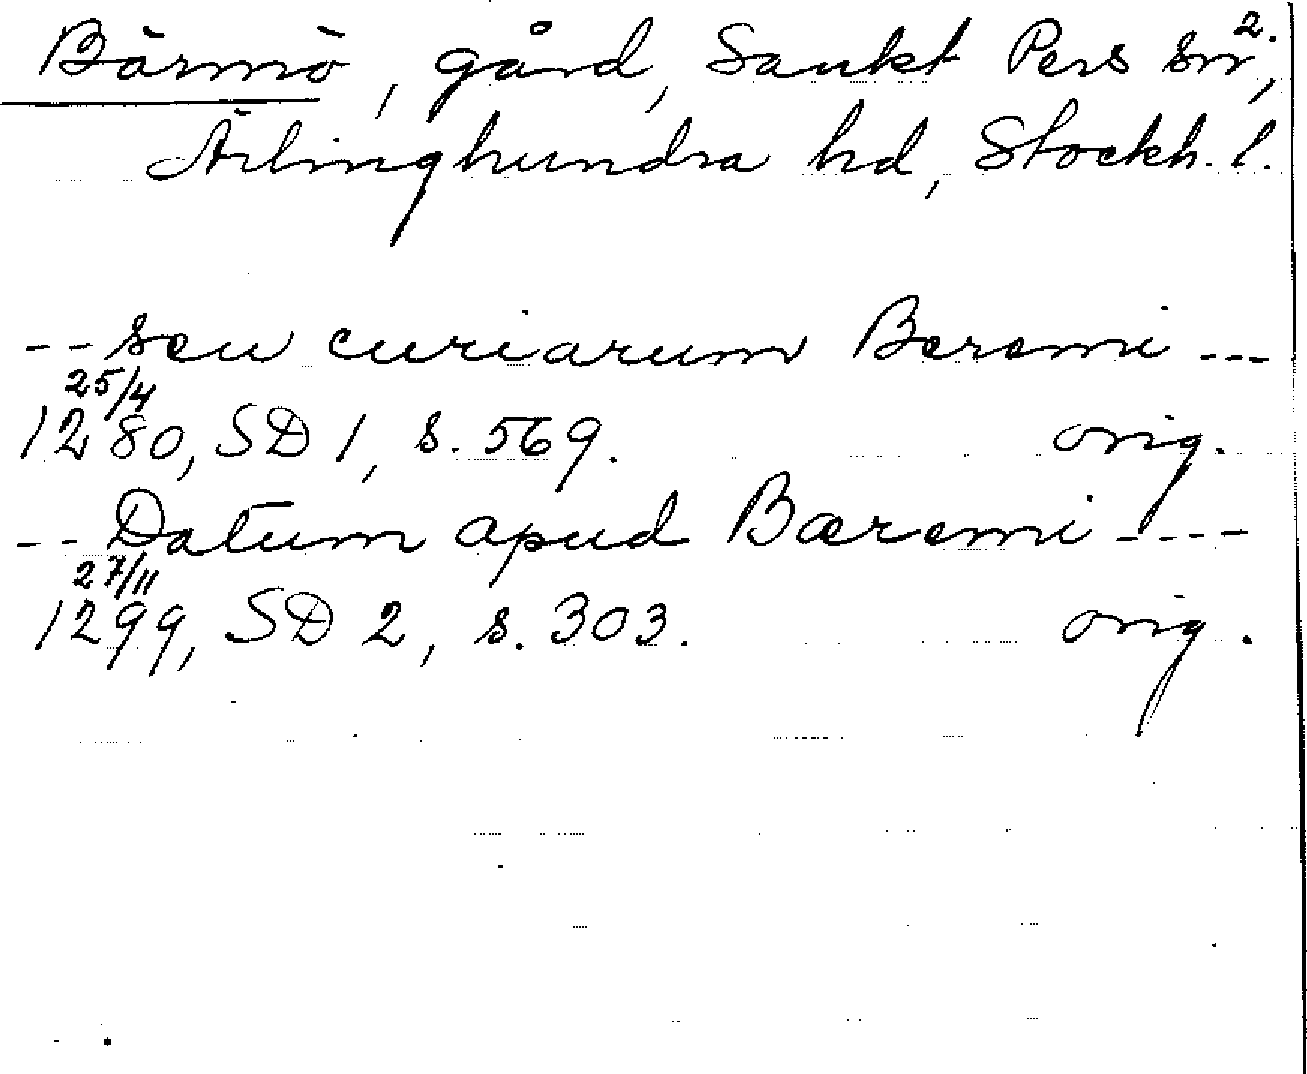 Bärmö, gård, Sankt Pers sn, 2.
Ärlinghundra hd, Stockh. l.
-- seu curiarum Beremi ---
25/4
1280, SD 1, s. 569. orig.
-- Datum apud Bæremi ----
27/11
1299, SD 2, s. 303. orig.